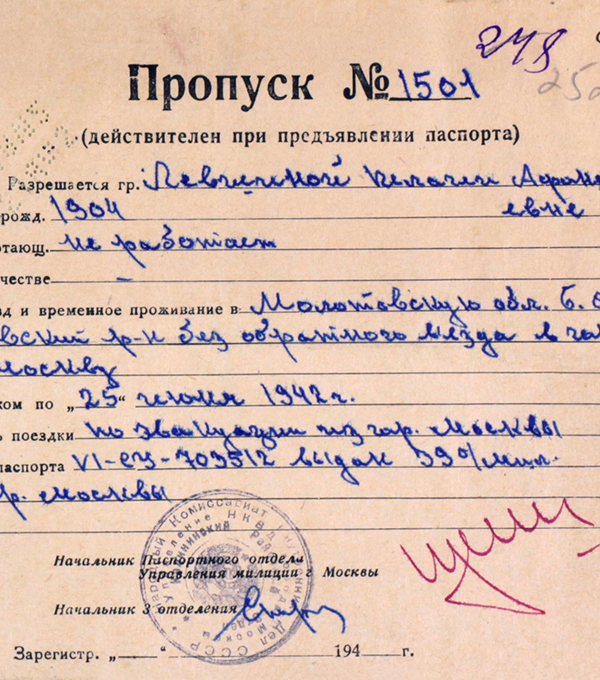 248
252
Пропуск № 1501
(действителен при предъявлении паспорта)
Разрешается гр. Левчинской Пелагеи Афана
рожд. 1904 евне
отающ. не работает
честве —
д и временное проживание в Молотовскую обл. Б. С
вский р-н без обратного въезда в гор
Москву
ком по „25“ июня 1942 г.
ь поездки по эвакуации из гор. Москвы
паспорта VI-СУ-703512 выдан 39 о/мил.
р. Москвы
Начальник Паспортного отдела
Управления милиции г Москвы
Начальник 3 отделения
Зарегистр. „ “ 194 г.